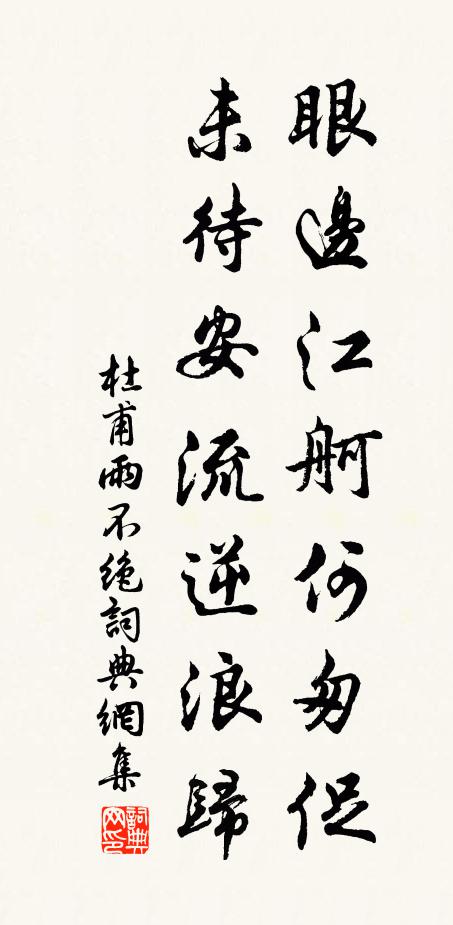 眼邊江舸何匆促
未待安流逆浪歸
杜甫雨不絕詞典網集
詞典网印